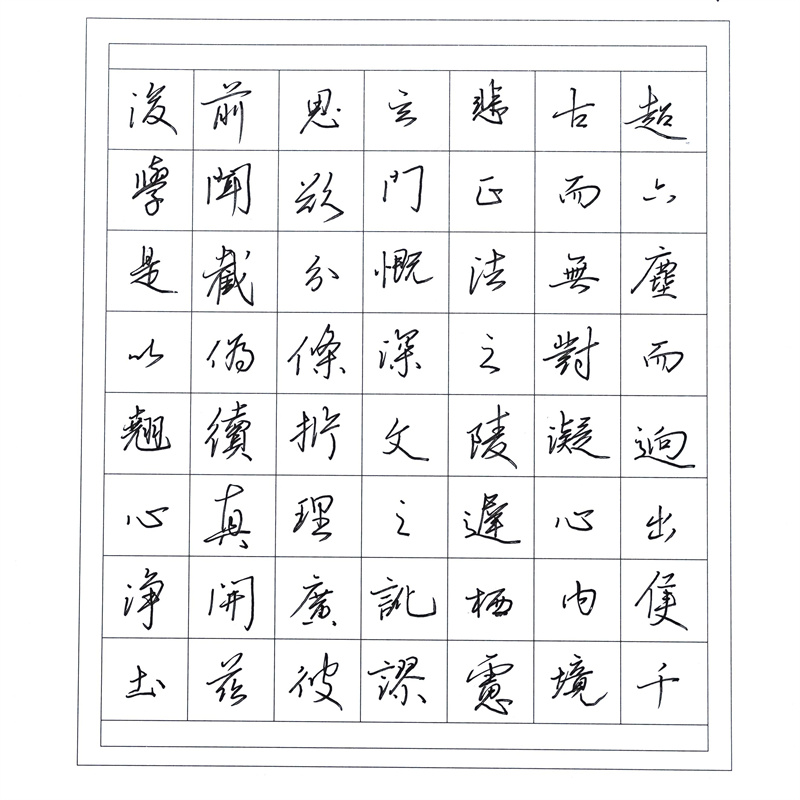 超六塵而迥出隻千
古而無對凝心內境
悲正法之陵遲栖慮
玄門慨深文之訛謬
思欲分條析理廣彼
前聞截偽續真開茲
後學是以翹心淨土